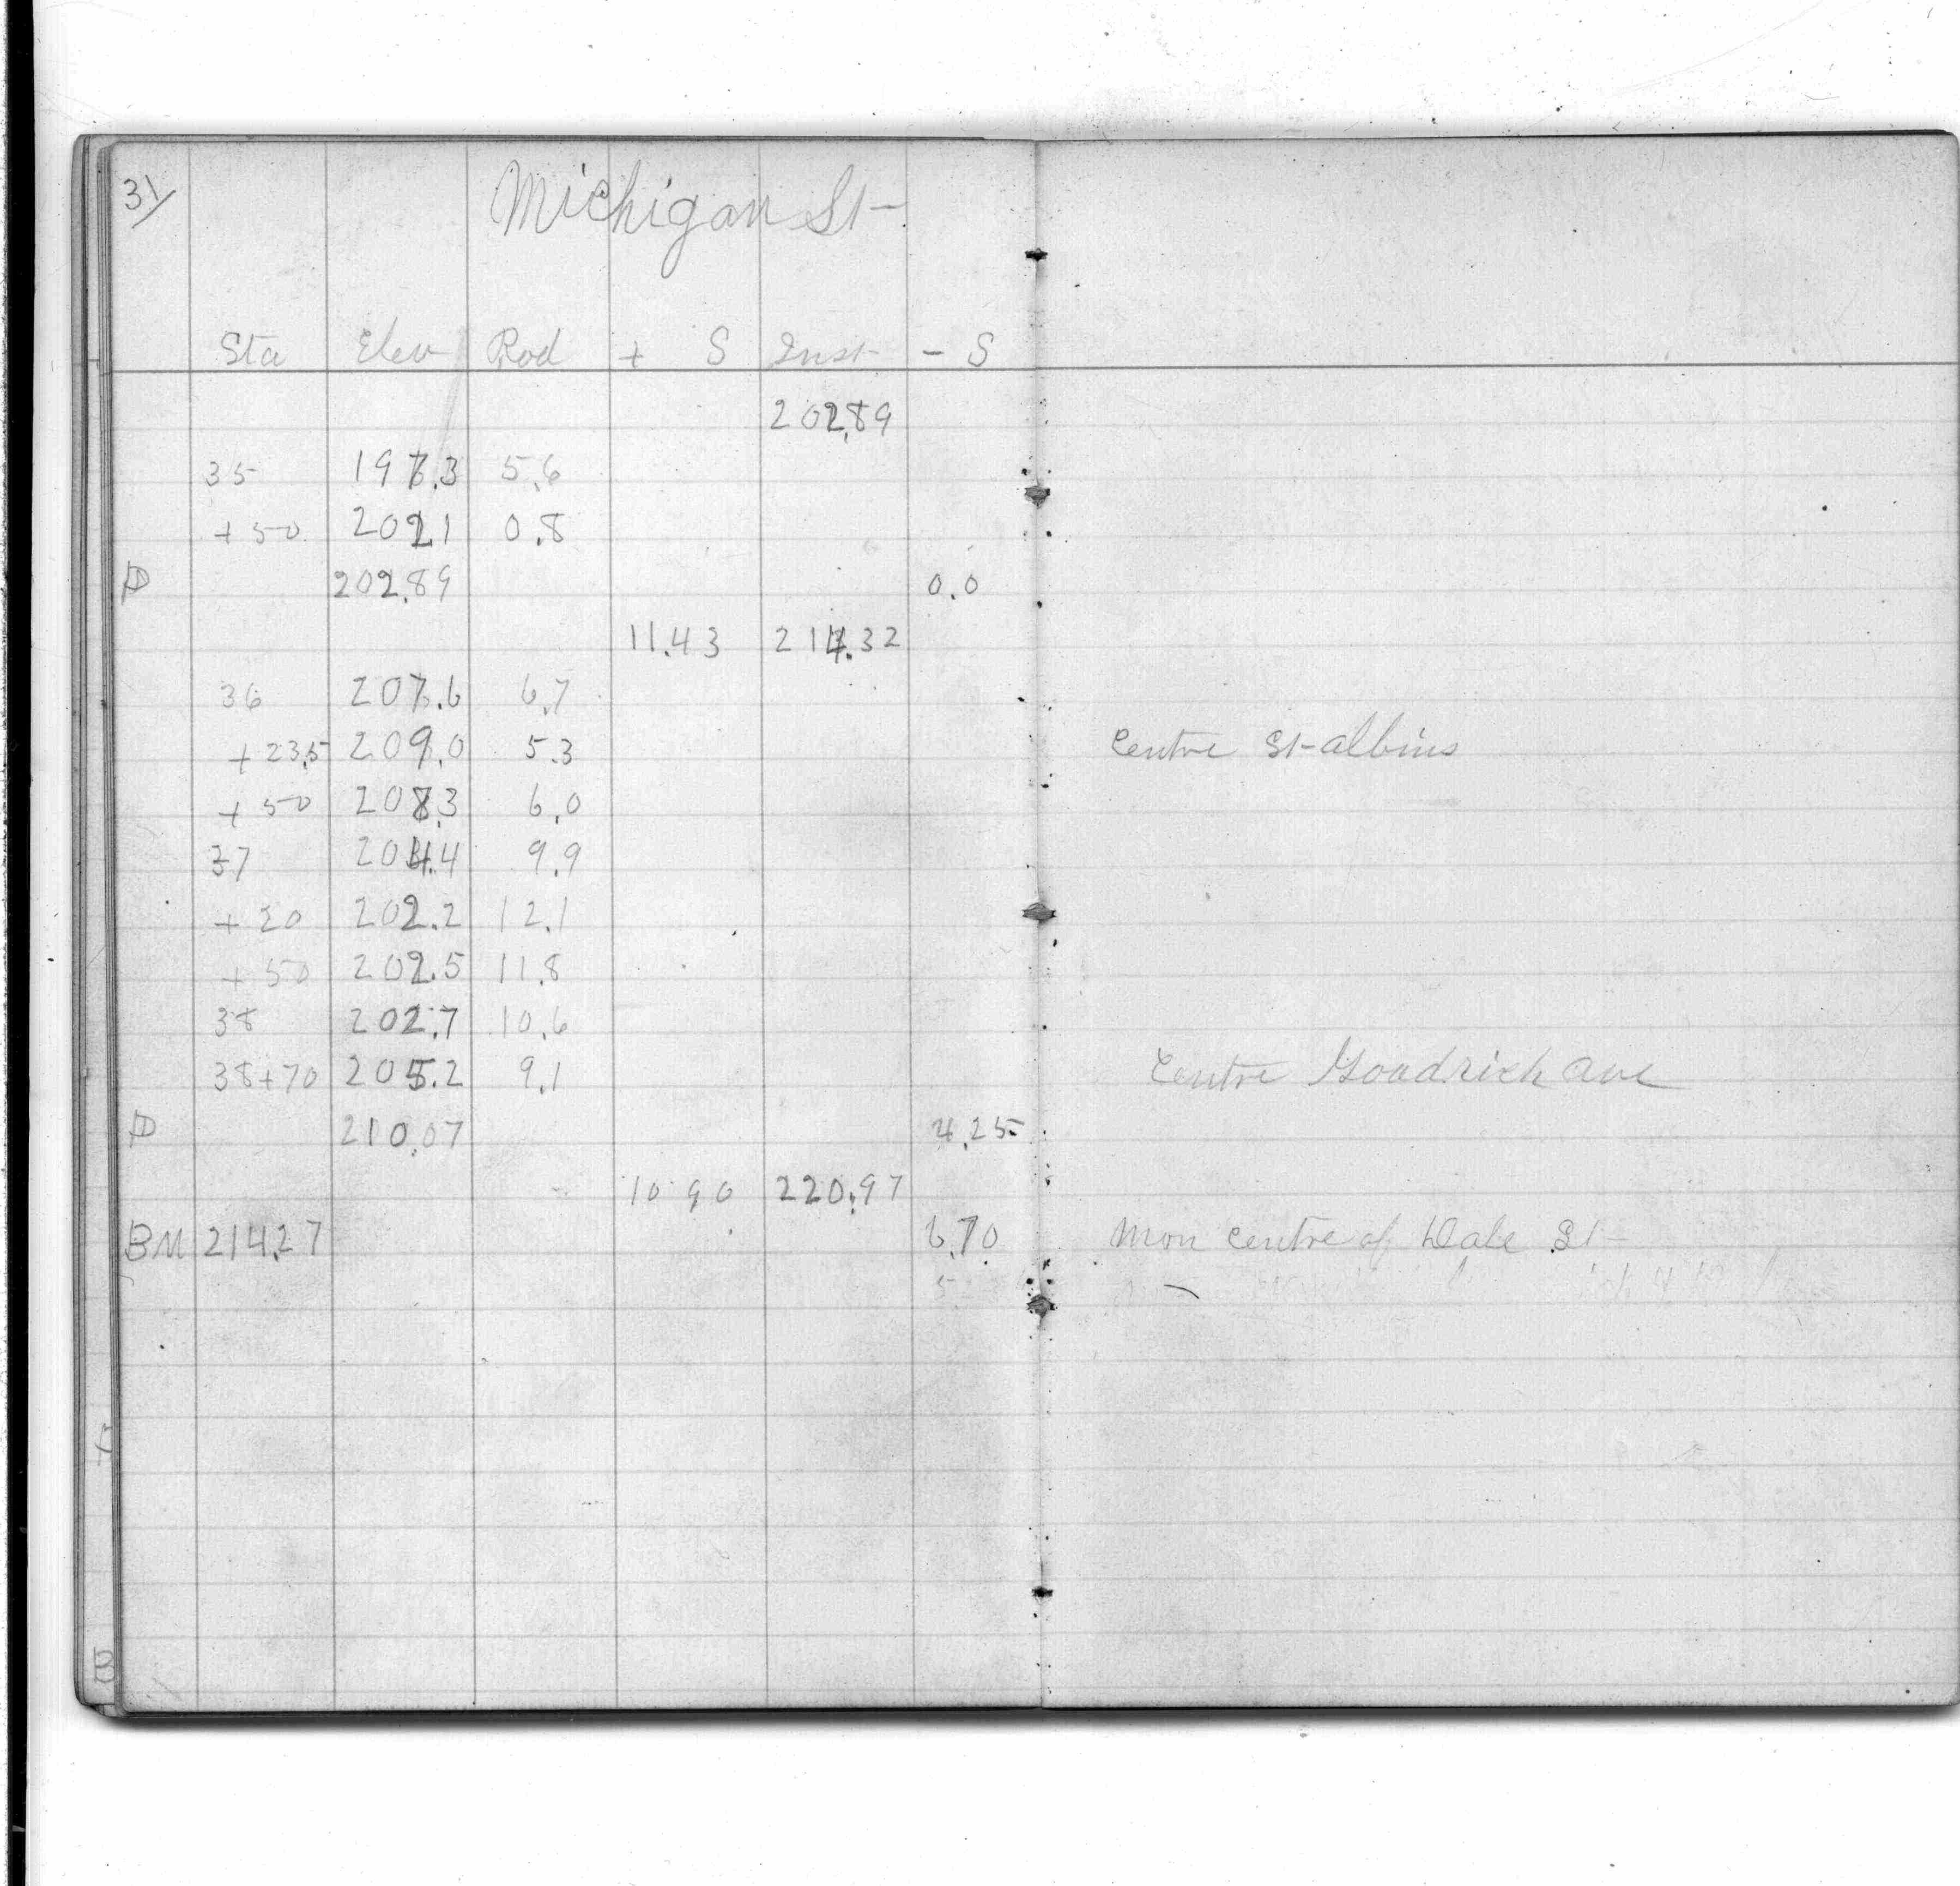 31/
Michigan St
Sta Elev Rod + S Inst - S
202.89
35 197.3 5.6
+50 202.1 0.8
202.89 0.0
11.43 214.32
36 207.6 6.7
+23.5 209.0 5.3 Centre St albins
+50 208.3 6.0
37 204.4 9.9
+20 202.2 12.1
+50 202.5 11.8
38 202.7 10.6
38+70 205.2 9.1 Centre Goodrich ave
210.07 4.25
10 90 220.97
BM 214.27 6.70 Mon centre of Dale St